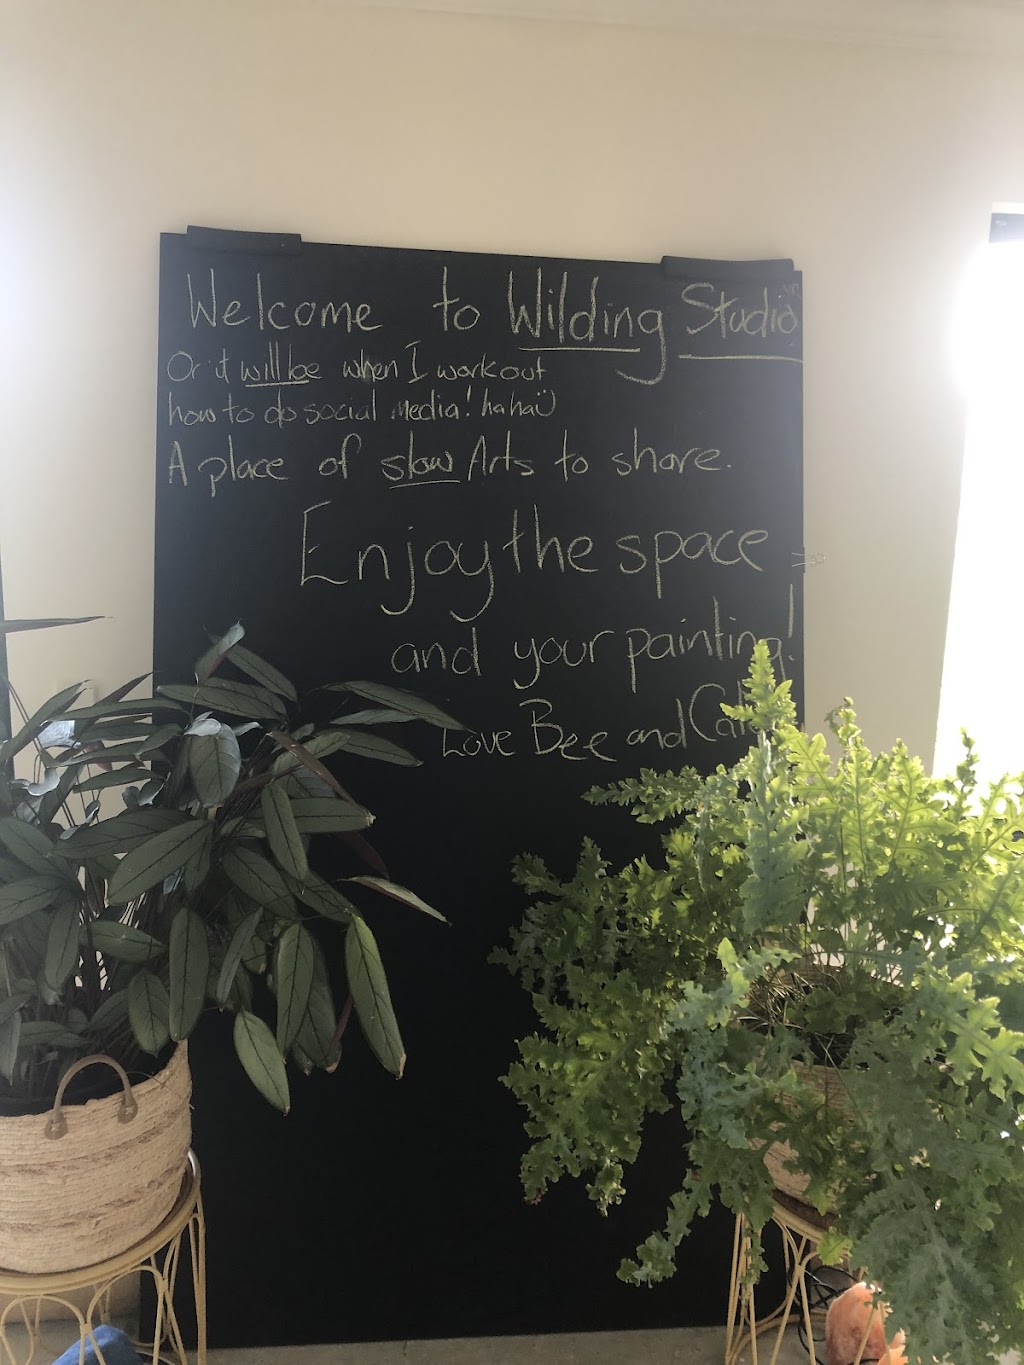 Welcome to Wilding Studio
Or it will be when I work out
how to do social media! haha
A place of slow Arts to share.
Enjoy the space
and your painting!
Love Bee and